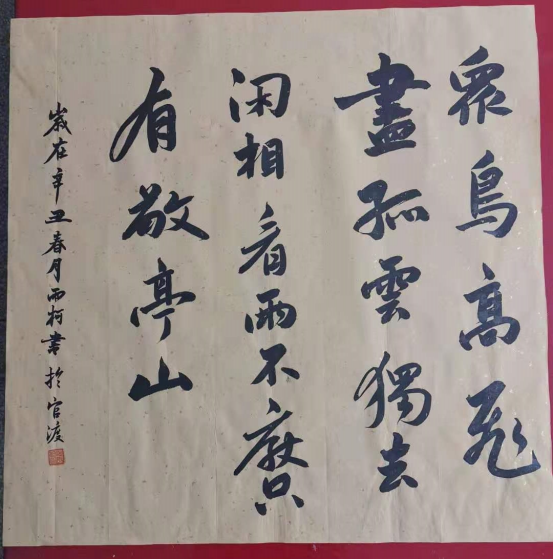 眾鳥高飛
盡孤雲獨去
閑相看兩不厭只
有敬亭山
歲在辛丑春月雨柯書於官渡